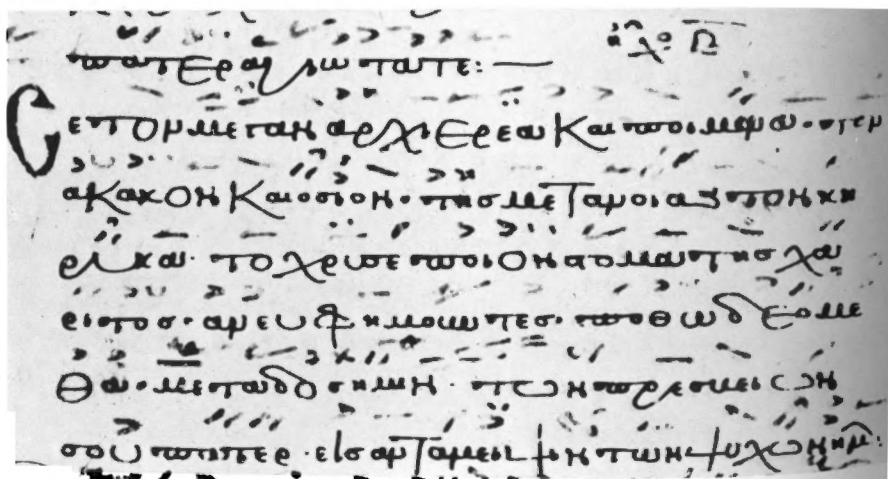 πατερ αγιωτατε:—
Σε τον μεγαν αρχιερέα Και ποιμένα· τον
ακακον Και οσιον· της μετανοιας τον κη
ρυκα· το της χά
ριτος· ανευφημουντες· ποθω δεόμε
θα· μεταδος ημιν· των πρεσβειων
σου πατερ· εις ανταμειψιν των ψυχων ημ͂: